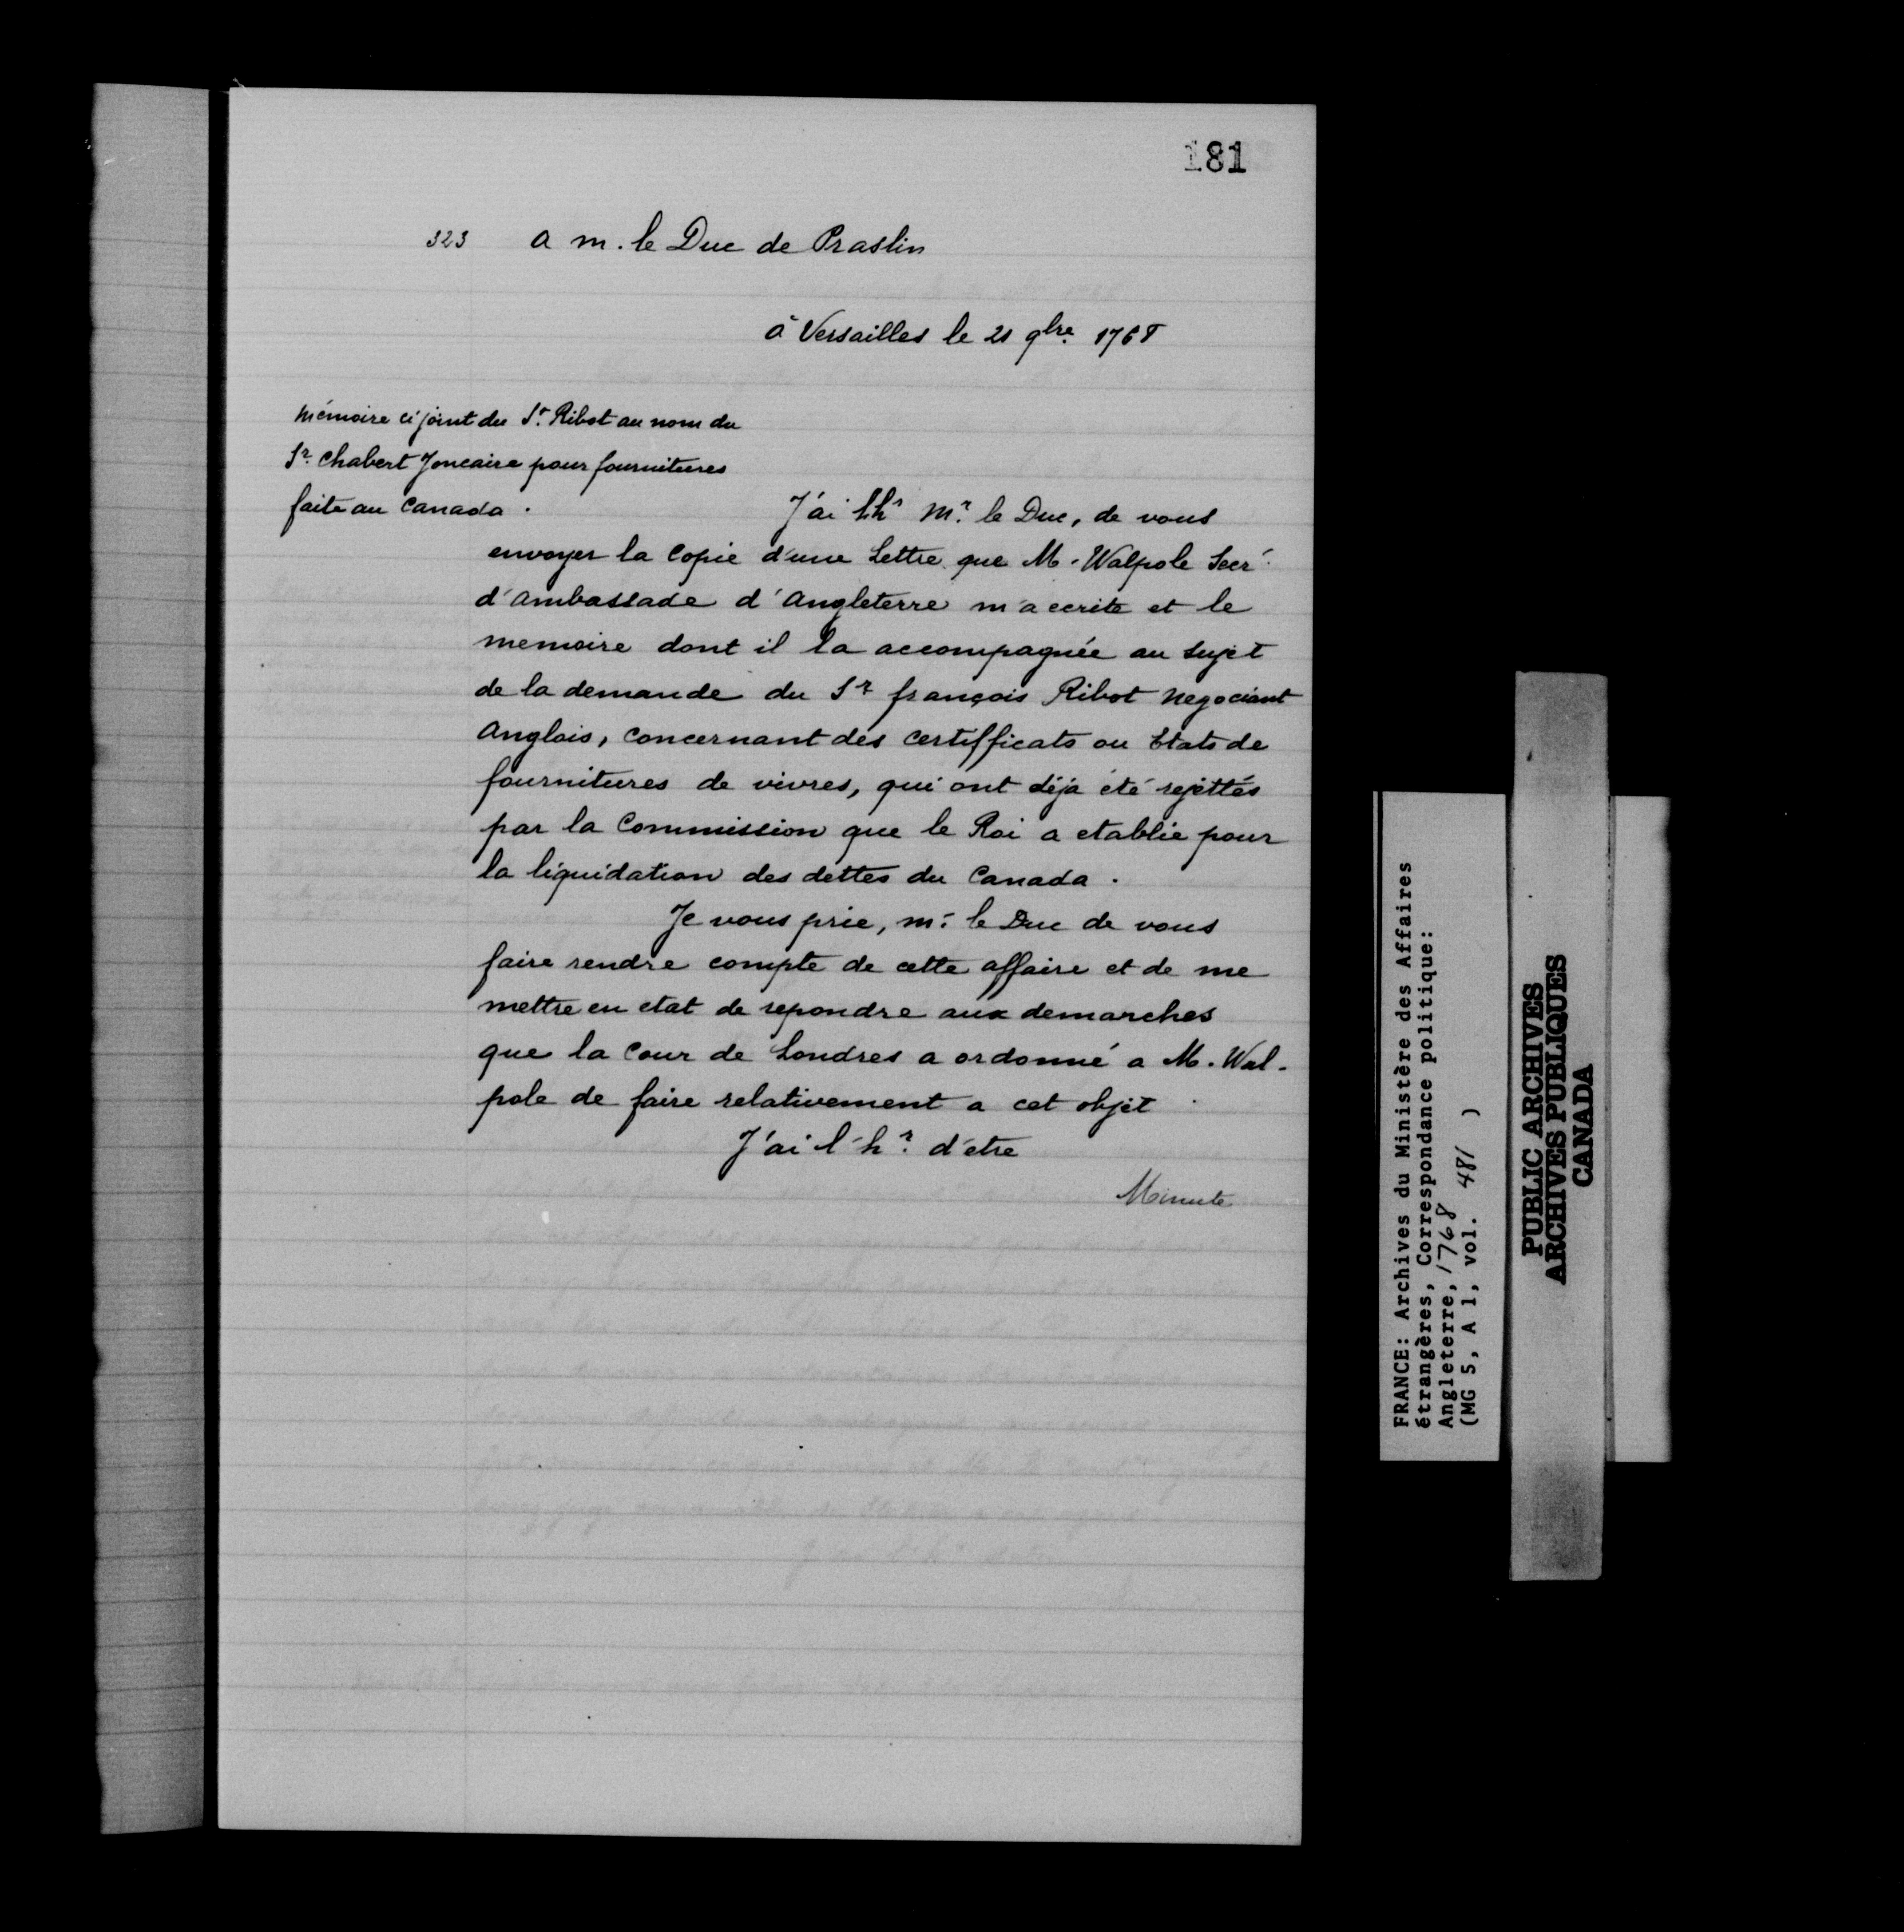 181
323 a m. le Duc de Praslin
à Versailles le 21 9bre. 1768
Mémoire ci joint du Sr. Ribot au nom du
Sr. Chabert Joncaire pour fournitures
faite au Canada.
J'ai l'hr Mr. le Duc, de vous
envoyer la Copie d'une Lettre que M. Walpole Secr.
d'ambassade d'Angleterre m'a ecrite et le
memoire dont il la accompagnée au sujet
de la demande du Sr françois Ribot Negociant
Anglois, Concernant des certifficats ou Etats de
fournitures de vivres, qui ont déja été rejettés
par la Commission que le Roi a etablie pour
la liquidation des dettes du Canada.
Je vous prie, mr. le Duc de vous
faire rendre compte de cette affaire et de me
mettre en etat de repondre aux demarches
que la Cour de Londres a ordonné a M. Wal-
pole de faire relativement a cet objet.
J'ai l'hr. d'etre
Minute
FRANCE: Archives du Ministère des Affaires
étrangères, Correspondance politique:
Angleterre, 1768
(MG 5, A 1, vol. 481 )
PUBLIC ARCHIVES
ARCHIVES PUBLIQUES
CANADA